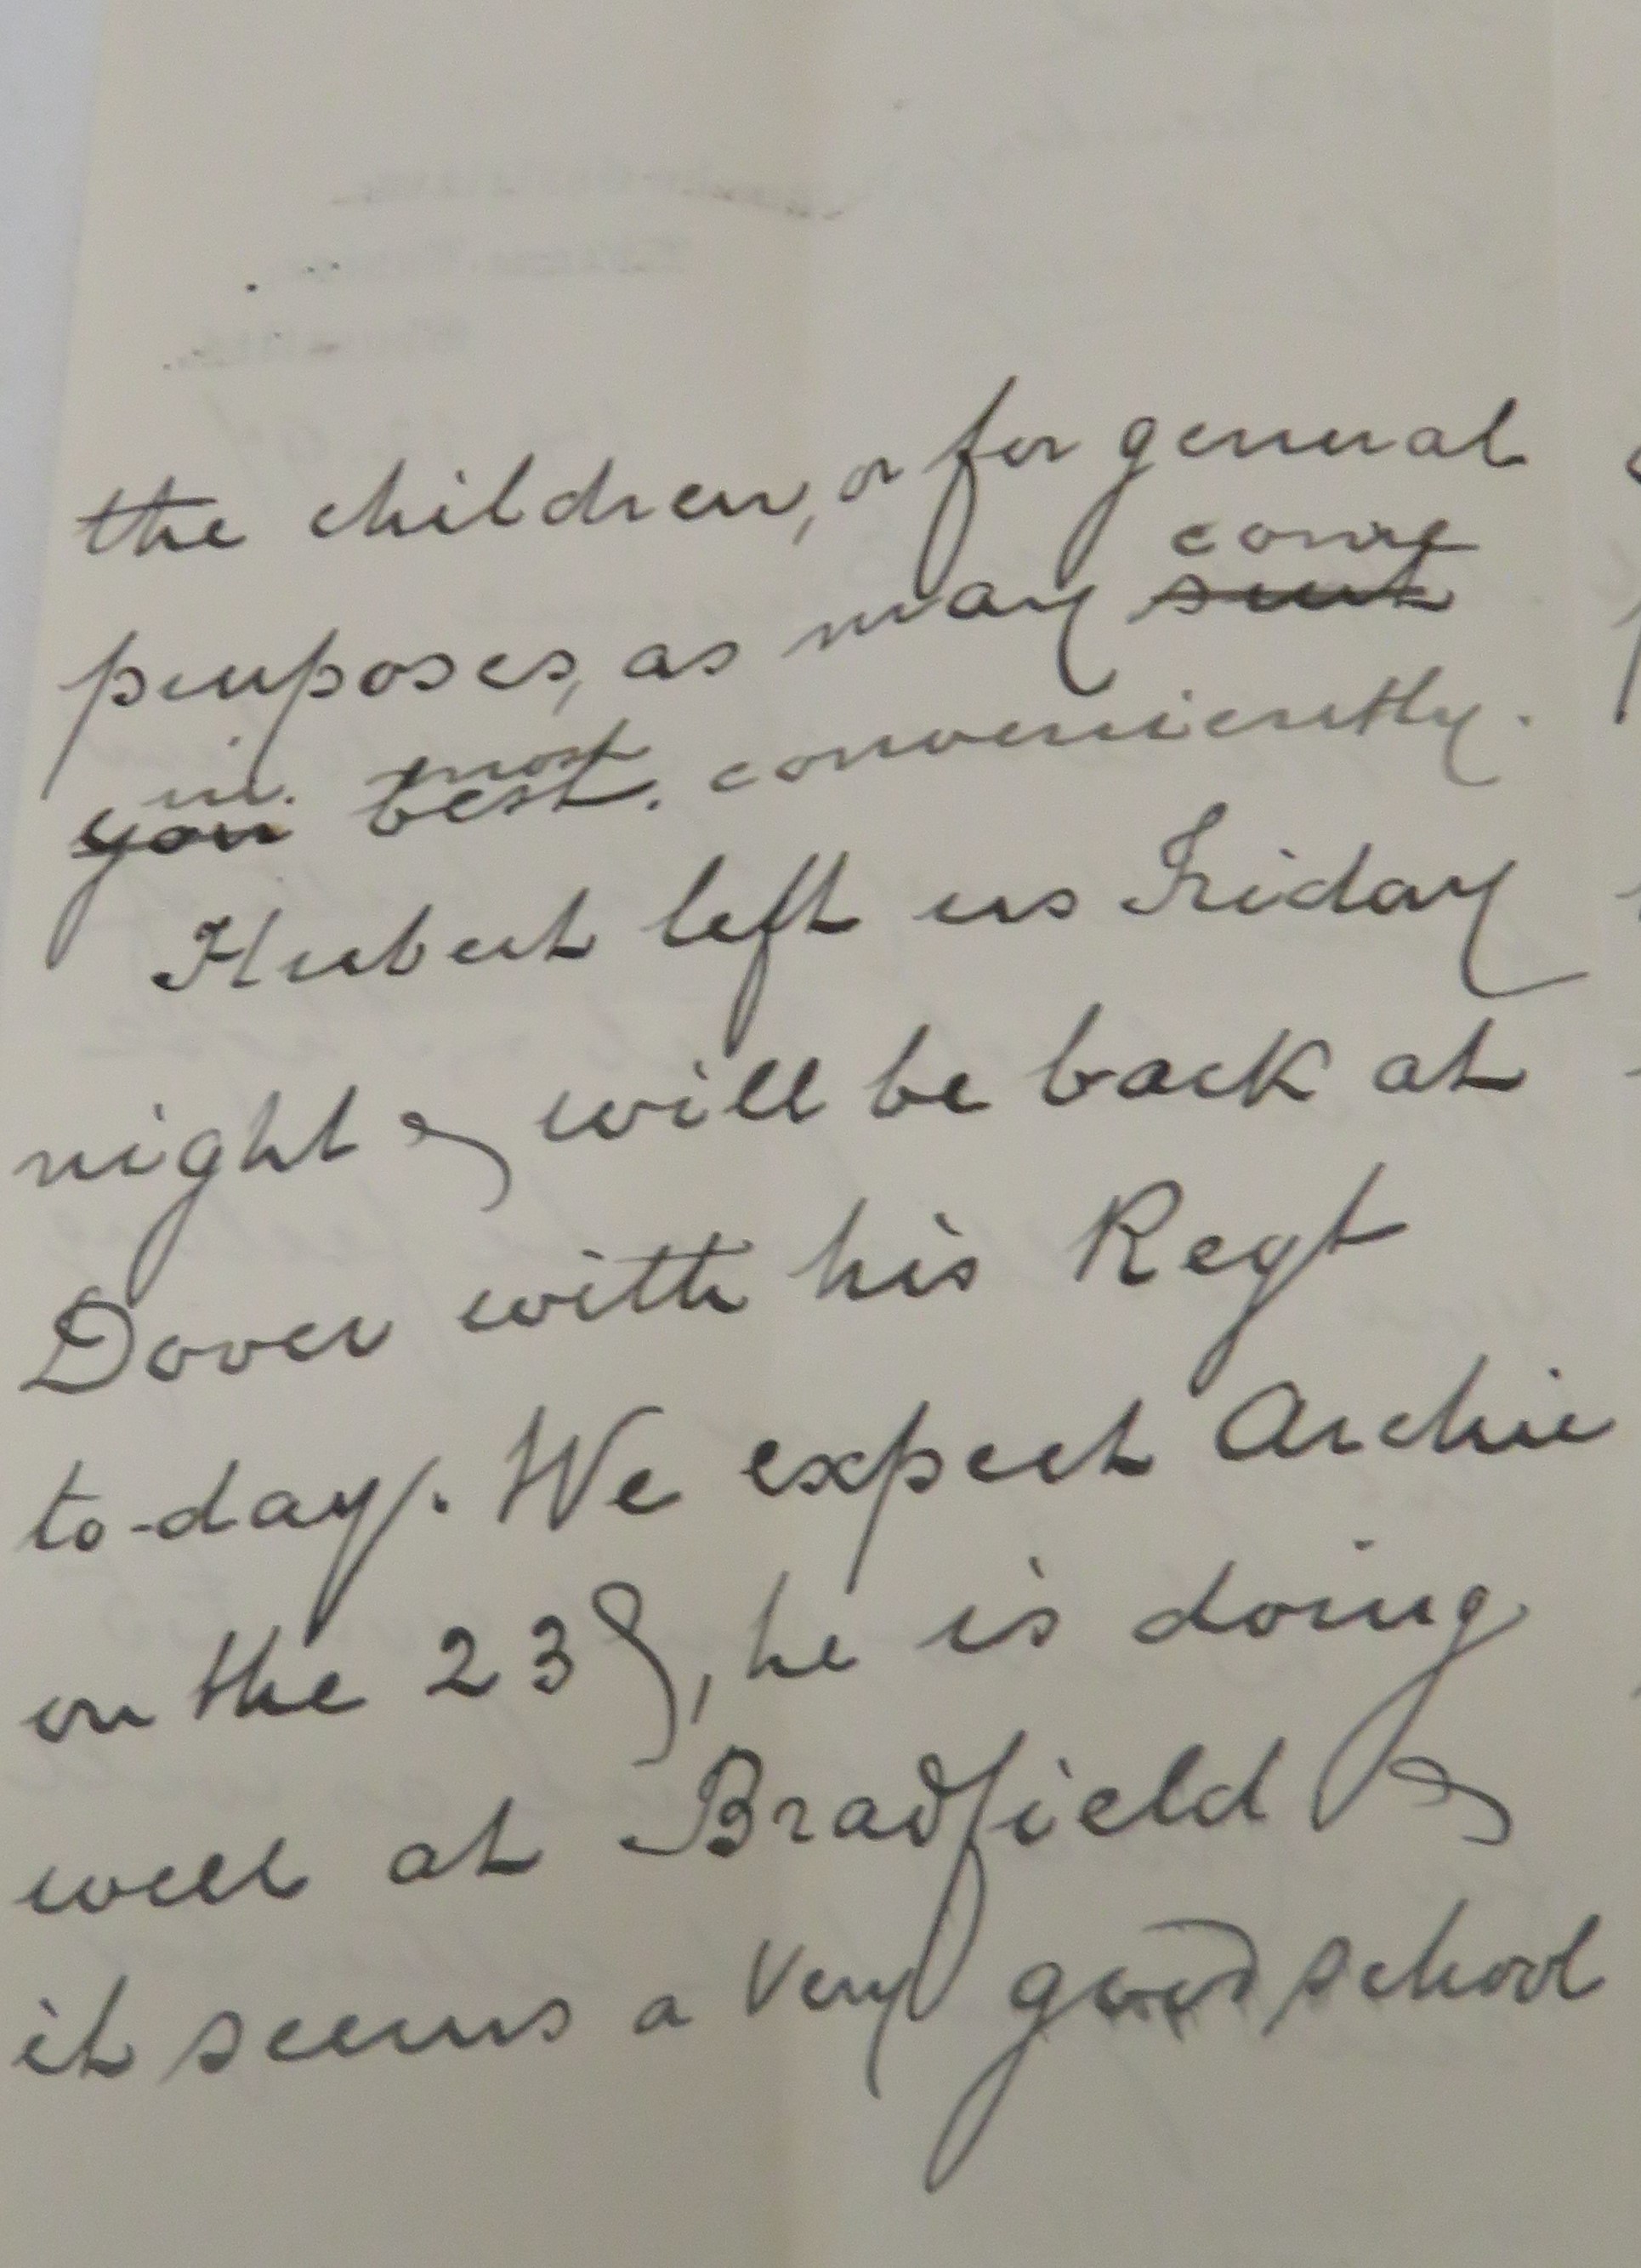 the children, or for general
come
purposes, as may suit
in. most
you best. conveniently.
Hubert left us Friday
night & will be back at
Dover with his Regt
to-day. We expect Archie
on the 23rd, he is doing
well at Bradfield &
it seems a very good school